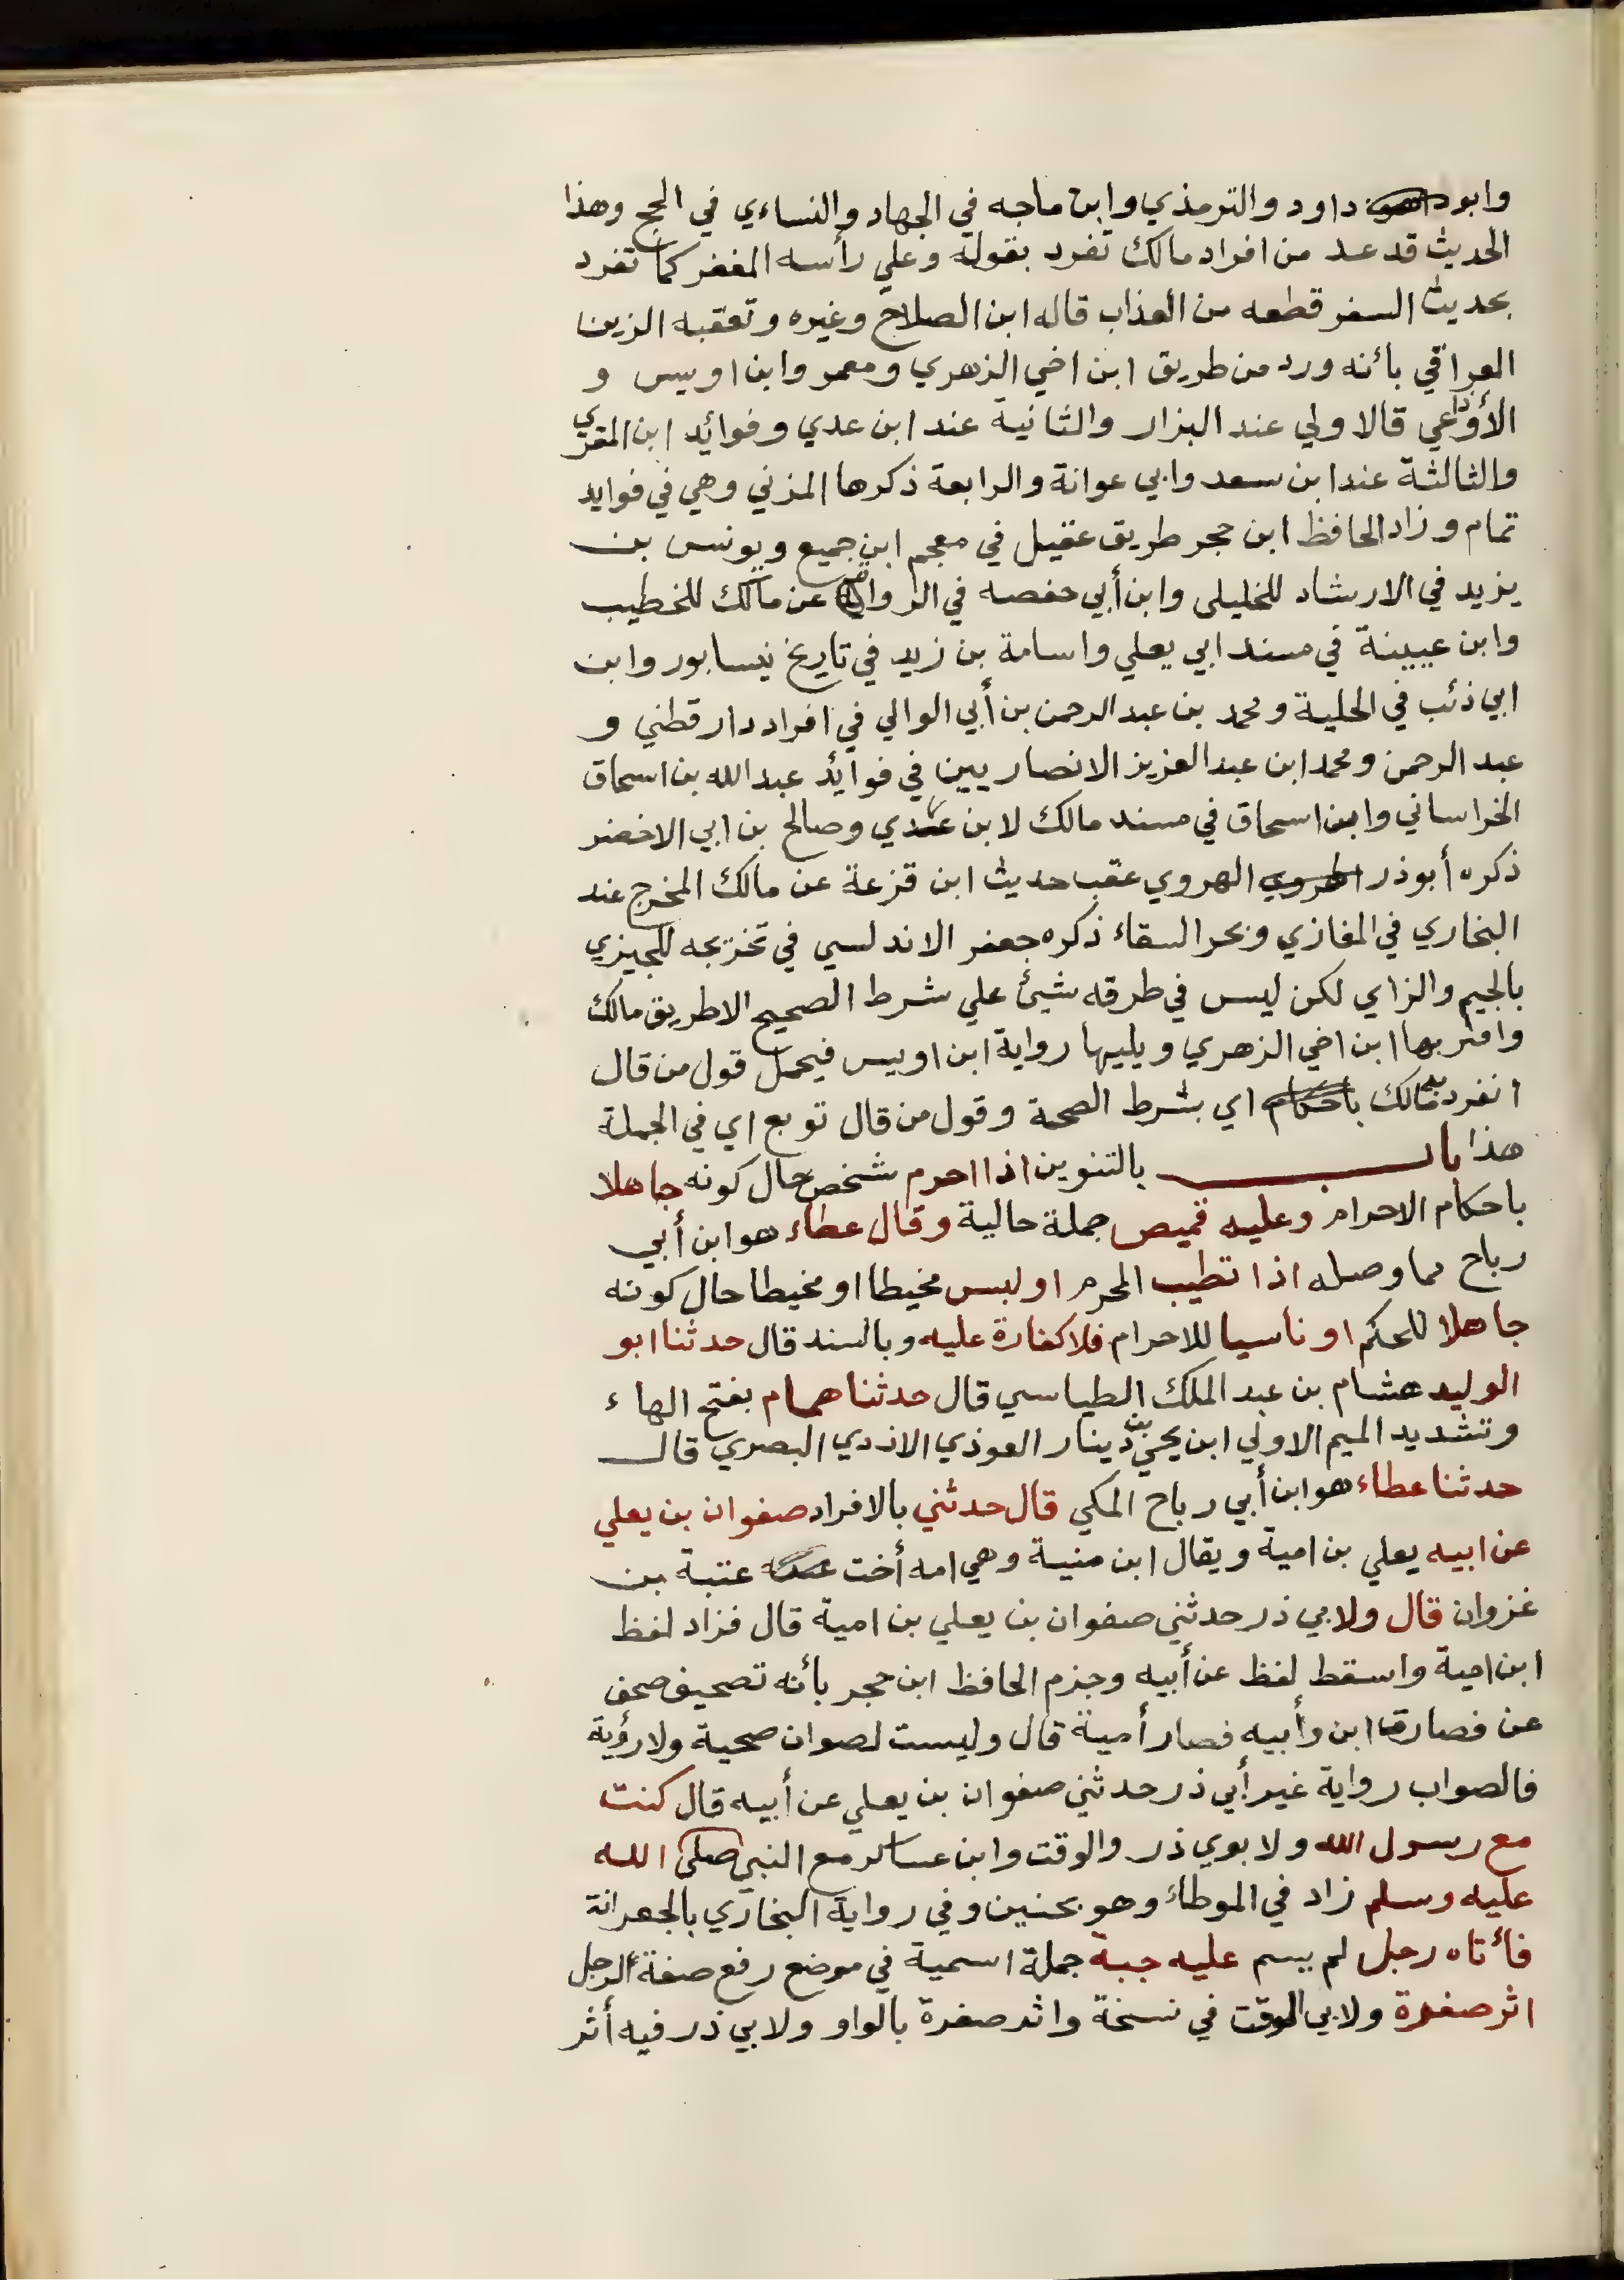 وابو داود والترمذي وابن ماجه في الجهاد والنساءي في الحج وهذا
الحديث قد عد من افراد مالك تفرد بقوله وعلي رأسه المغفر كما تفرد
بحديث السفر قطعه من العذاب قاله ابن الصلاح وغيره وتعقبه الزين
العراقي بأنه ورد من طريق ابن اخي الزهري ومعمر وابن اويس و
الأوزاعي قالا ولي عند البزار والثانية عند ابن عدي وفوائد ابن المقري
والثالثة عند ابن سعد وابي عوانة والرابعة ذكرها المزني وهي في فوايد
تمام وزاد الحافظ ابن حجر طريق عقيل في معجم ابن جميع ويونس بن
يزيد في الارشاد للخليلي وابن أبي حفصه في الرواة عن مالك للخطيب
وابن عيينة في مسند ابي يعلي واسامة بن زيد في تاريخ نيسابور وابن
ابي ذئب في الحلية ومحمد بن عبد الرحمن بن أبي الوالي في افراد دار قطني و
عبد الرحمن ومحمد ابن عبد العزيز الانصاريين في فوايد عبد الله بن اسحاق
الخراساني وابن اسحاق في مسند مالك لابن عدي وصالح بن ابي الاخضر
ذكره أبو ذر الهروي عقب حديث ابن قزعة عن مالك المخرج عند
البخاري في المغازي وبحر السقاء ذكره جعفر الاندلسي في تخريجه للجيزي
بالجيم والزاي لكن ليس في طرقه شيئ علي شرط الصحيح الا طريق مالك
واقربها ابن اخي الزهري ويليها رواية ابن اويس فيحمل قول من قال
انفرد به مالك اي بشرط الصحة وقول من قال توبع اي في الجملة
هذا باب بالتنوين اذا احرم شخص حال كونه جاهلا
باحكام الاحرام وعليه قميص جملة حالية وقال عطاء هو ابن أبي
رباح مما وصله اذا تطيب المحرم او لبس مخيطا او مخيطا حال كونه
جاهلا للحكم او ناسيا للاحرام فلا كفارة عليه وبالسند قال حدثنا ابو
الوليد هشام بن عبد الملك الطياسي قال حدثنا همام بفتح الهاء
وتشديد الميم الاولي ابن يحيي بن دينار العوذي الازدي البصري قال
حدثنا عطاء هو ابن أبي رباح المكي قال حدثني بالافراد صفوان بن يعلي
عن ابيه يعلي بن امية ويقال ابن منية وهي امه أخت عتبة بن
غزوان قال ولابي ذر حدثني صفوان بن يعلي بن امية قال فزاد لفظ
ابن امية واسقط لفظ عن أبيه وجزم الحافظ ابن حجر بأنه تصحيف صحف
عن فصارت ابن وأبيه فصار أمية قال وليست لصوان صحبة ولا رؤية
فالصواب رواية غير أبي ذر حدثني صفوان بن يعلي عن أبيه قال كنت
مع رسول الله ولابوي ذر والوقت وابن عساكر مع النبي صلى الله
عليه وسلم زاد في الموطاء وهو بحنين وفي رواية البخاري بالجعرانة
فأتاه رجل لم يسم عليه جبة جملة اسمية في موضع رفع صفة الرجل
اثر صفرة ولابي الوقت في نسخة واثر صفرة بالواو ولابي ذر فيه أثر